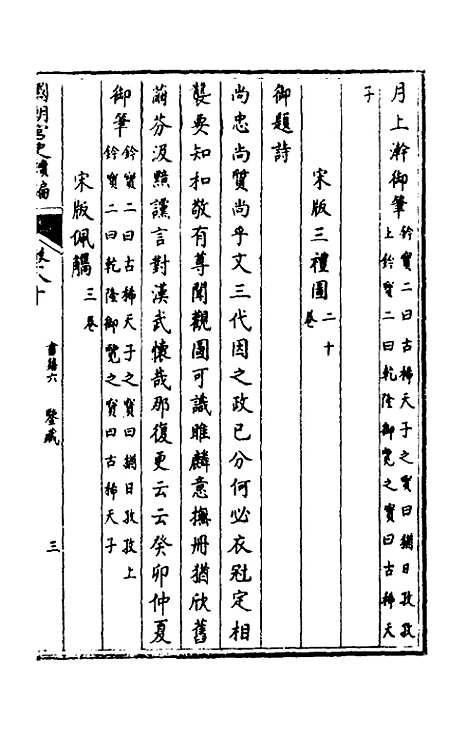 月上澣御筆鈐寶二曰古稀天子之寶曰猶日孜孜
上鈐寶二曰乾隆御覽之寶曰古稀天
子
宋版三禮圖二十
卷
御題詩
尚忠尚質尚乎文三代因之政已分何必衣冠定相
襲要知和敬有尊聞觀圖可識睢麟意撫冊猶欣舊
蒳芬汲黯讜言對漢武懷哉那復更云云癸卯仲夏
御筆鈐寶二曰古稀天子之寶曰猶日孜孜上
鈐寶二曰乾隆御覽之寶曰古稀天子
宋版佩觿三卷
國朝宮史續編
卷八十
書籍六 鑒藏
三